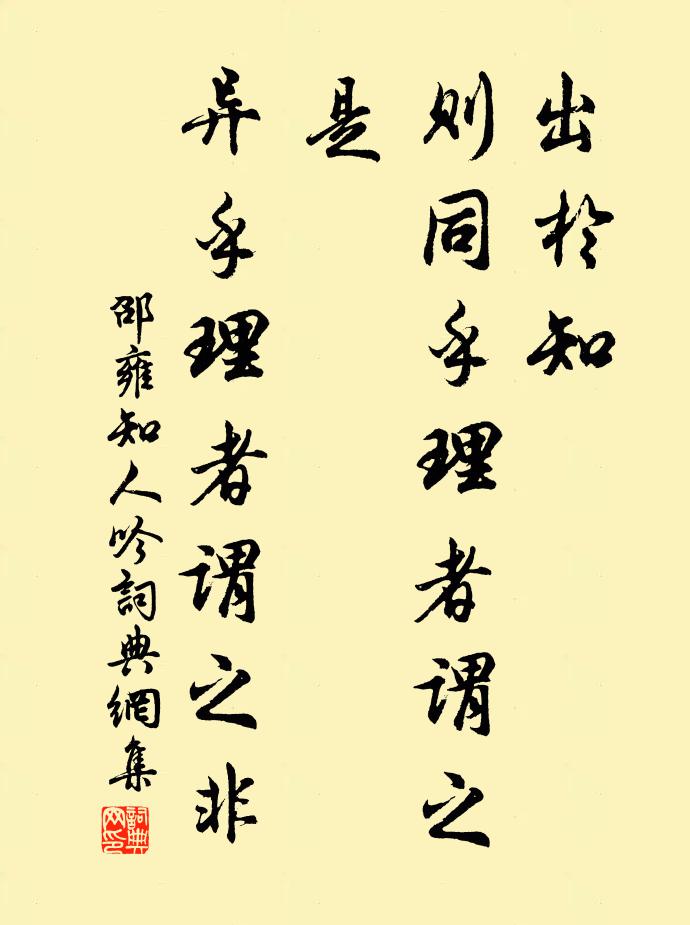 出於知
则同乎理者谓之
是
异乎理者谓之非
邵雍知人吟詞典網集
詞典网印